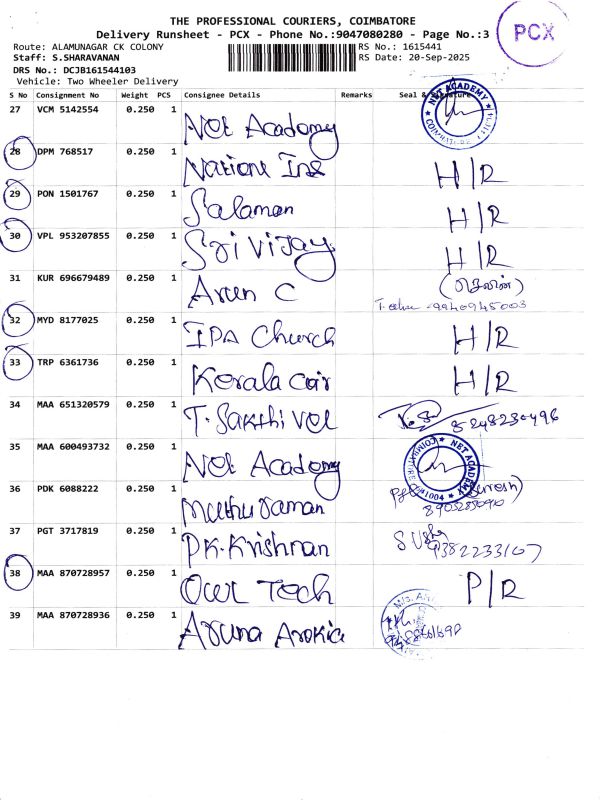 THE PROFESSIONAL COURIERS, COIMBATORE
Delivery Runsheet - PCX - Phone No.:9047080280 - Page No.:3
PCX
Route: ALAMUNAGAR CK COLONY RS No.: 1615441
Staff: S.SHARAVANAN RS Date: 20-Sep-2025
DRS No.: DCJB161544103
Vehicle: Two Wheeler Delivery
S No Consignment No Weight PCS Consignee Details Remarks Seal & Signature
27 VCM 5142554 0.250 1 Net Academy NET ACADEMY
28 DPM 768517 0.250 1 Nationl Ins H/R
29 PON 1501767 0.250 1 Salaman H/R
30 VPL 953207855 0.250 1 Sri Vijay H/R
31 KUR 696679489 0.250 1 Arun C
32 MYD 8177025 0.250 1 IPA Church H/R
33 TRP 6361736 0.250 1 Kerala cair H/R
34 MAA 651320579 0.250 1 T. Sakthi vel 8248230496
35 MAA 600493732 0.250 1 Net Academy NET ACADEMY COIMBATORE
36 PDK 6088222 0.250 1 Muthu raman
37 PGT 3717819 0.250 1 P.K. Krishnan 9382233167
38 MAA 870728957 0.250 1 Owr Tech P/R
39 MAA 870728936 0.250 1 Aruna Arokia